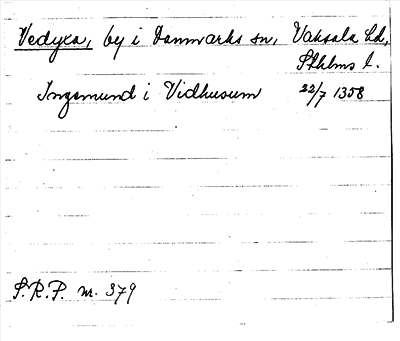 Vedyxa, by i Danmarks sn, Vaksala hd,
Sthlms l.
Ingemund i Vidhusum 22/7 1358
S.R.P. nr. 379